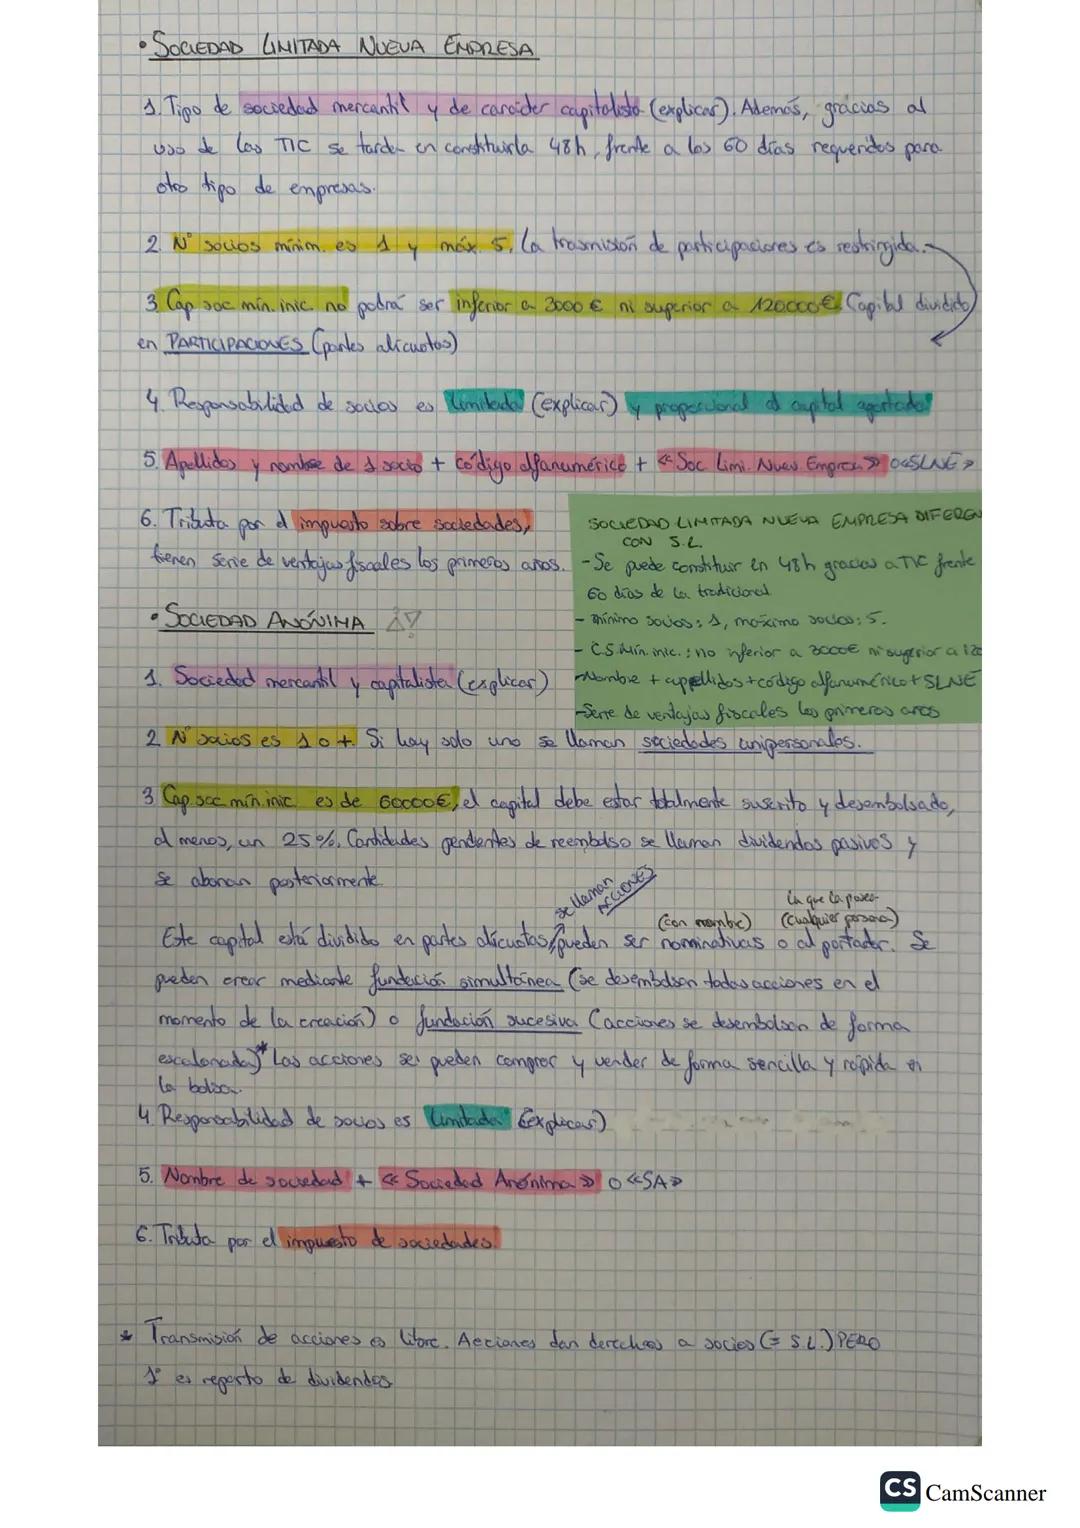 • SOCIEDAD LIMITADA NUEVA EMPRESA
1. Tipo de sociedad mercantil y de carácter capitalista (explicar). Además, gracias al
uso de las TIC se tarda en constituirla 48h, frente a los 60 días requeridos para
otro tipo de empresas.
2. Nº socios mínim. es 1 y máx. 5. La trasmisión de participaciones es restringida.
3. Cap. soc. mín. inic. no podrá ser inferior a 3000 € ni superior a 120000€. Capital dividido
en PARTICIPACIONES (partes alícuotas)
4. Responsabilidad de socios es limitada (explicar) y proporcional al capital aportado
5. Apellidos y nombre de 1 socio + código alfanumérico + «Soc. Limi. Nueva Empresa» o «SLNE»
6. Tributa por el impuesto sobre sociedades,
tienen serie de ventajas fiscales los primeros años.
SOCIEDAD LIMITADA NUEVA EMPRESA DIFEREN
CON S.L.
- Se puede constituir en 48h gracias a TIC frente
60 días de la tradicional
- mínimo socios: 1, máximo socios: 5.
- C.S. Mín. inic.: no inferior a 3000€ ni superior a 120
- Nombre + appellidos + código alfanumérico + SLNE
- Serie de ventajas fiscales los primeros años
• SOCIEDAD ANÓNIMA
1. Sociedad mercantil y capitalista (explicar)
2. Nº socios es 1 o +. Si hay solo uno se llaman sociedades unipersonales.
3. Cap. soc. mín. inic. es de 60000€, el capital debe estar totalmente suscrito y desembolsado,
al menos, un 25%. Cantidades pendientes de reembolso se llaman dividendos pasivos y
se abonan posteriormente.
se llaman
ACCIONES
(con nombre)
la que la posea
(cualquier persona)
Este capital está dividido en partes alícuotas, pueden ser nominativas o al portador. Se
pueden crear mediante fundación simultánea (se desembolsan todas acciones en el
momento de la creación) o fundación sucesiva (acciones se desembolsan de forma
escalonada)* Las acciones se pueden comprar y vender de forma sencilla y rápida en
la bolsa.
4. Responsabilidad de socios es limitada (explicar)
5. Nombre de sociedad + «Sociedad Anónima» o «SA»
6. Tributa por el impuesto de sociedades.
* Transmisión de acciones es libre. Acciones dan derechos a socios (= S.L.) PERO
1º es reparto de dividendos
CS CamScanner